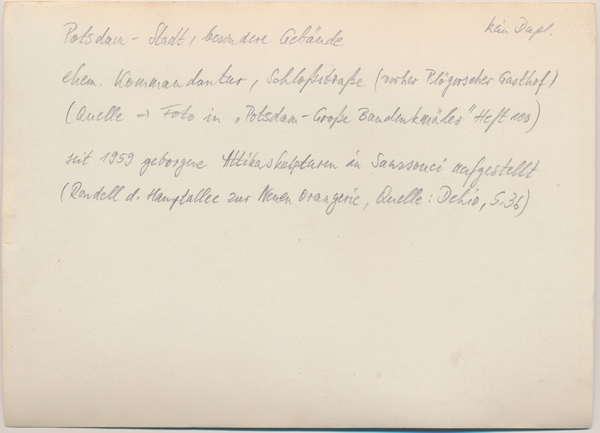 kein Dupl.
Potsdam - Stadt, besondere Gebäude
ehem. Kommandantur, Schloßstraße (vorher Plögerscher Gasthof)
(Quelle → Foto in „Potsdam-Große Baudenkmäler" Heft 100)
seit 1959 geborgene Attikaskulpturen in Sanssouci aufgestellt
(Rondell d. Hauptallee zur Neuen Orangerie, Quelle: Dehio, S.36)